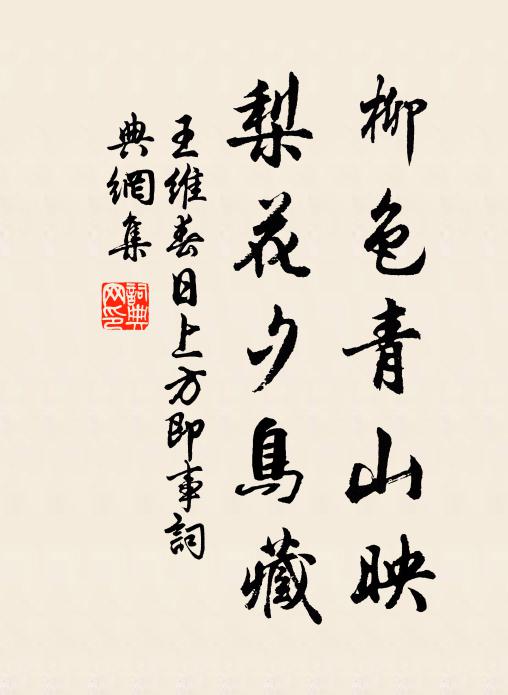 柳色青山映
梨花夕鳥藏
王維春日上方即事詞
典網集
詞典
网印